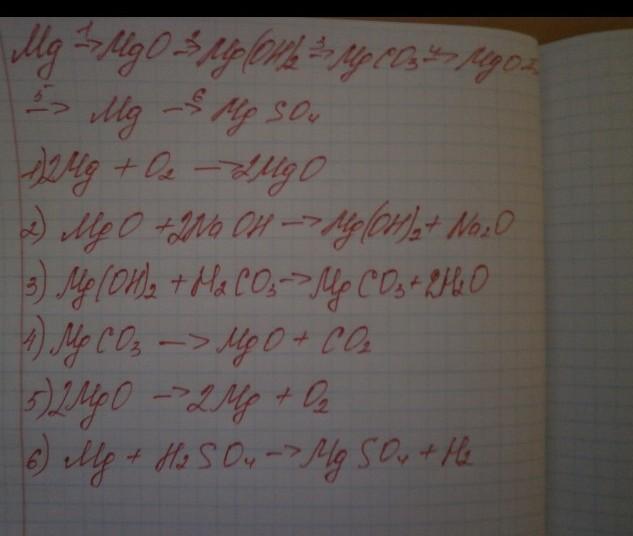 Mg 1→ MgO 2→ Mg(OH)2 3→ MgCO3 4→ MgO
5→ Mg 6→ MgSO4
1) 2Mg + O2 → 2MgO
2) MgO + 2NaOH → Mg(OH)2 + Na2O
3) Mg(OH)2 + H2CO3 → MgCO3 + 2H2O
4) MgCO3 → MgO + CO2
5) 2MgO → 2Mg + O2
6) Mg + H2SO4 → MgSO4 + H2